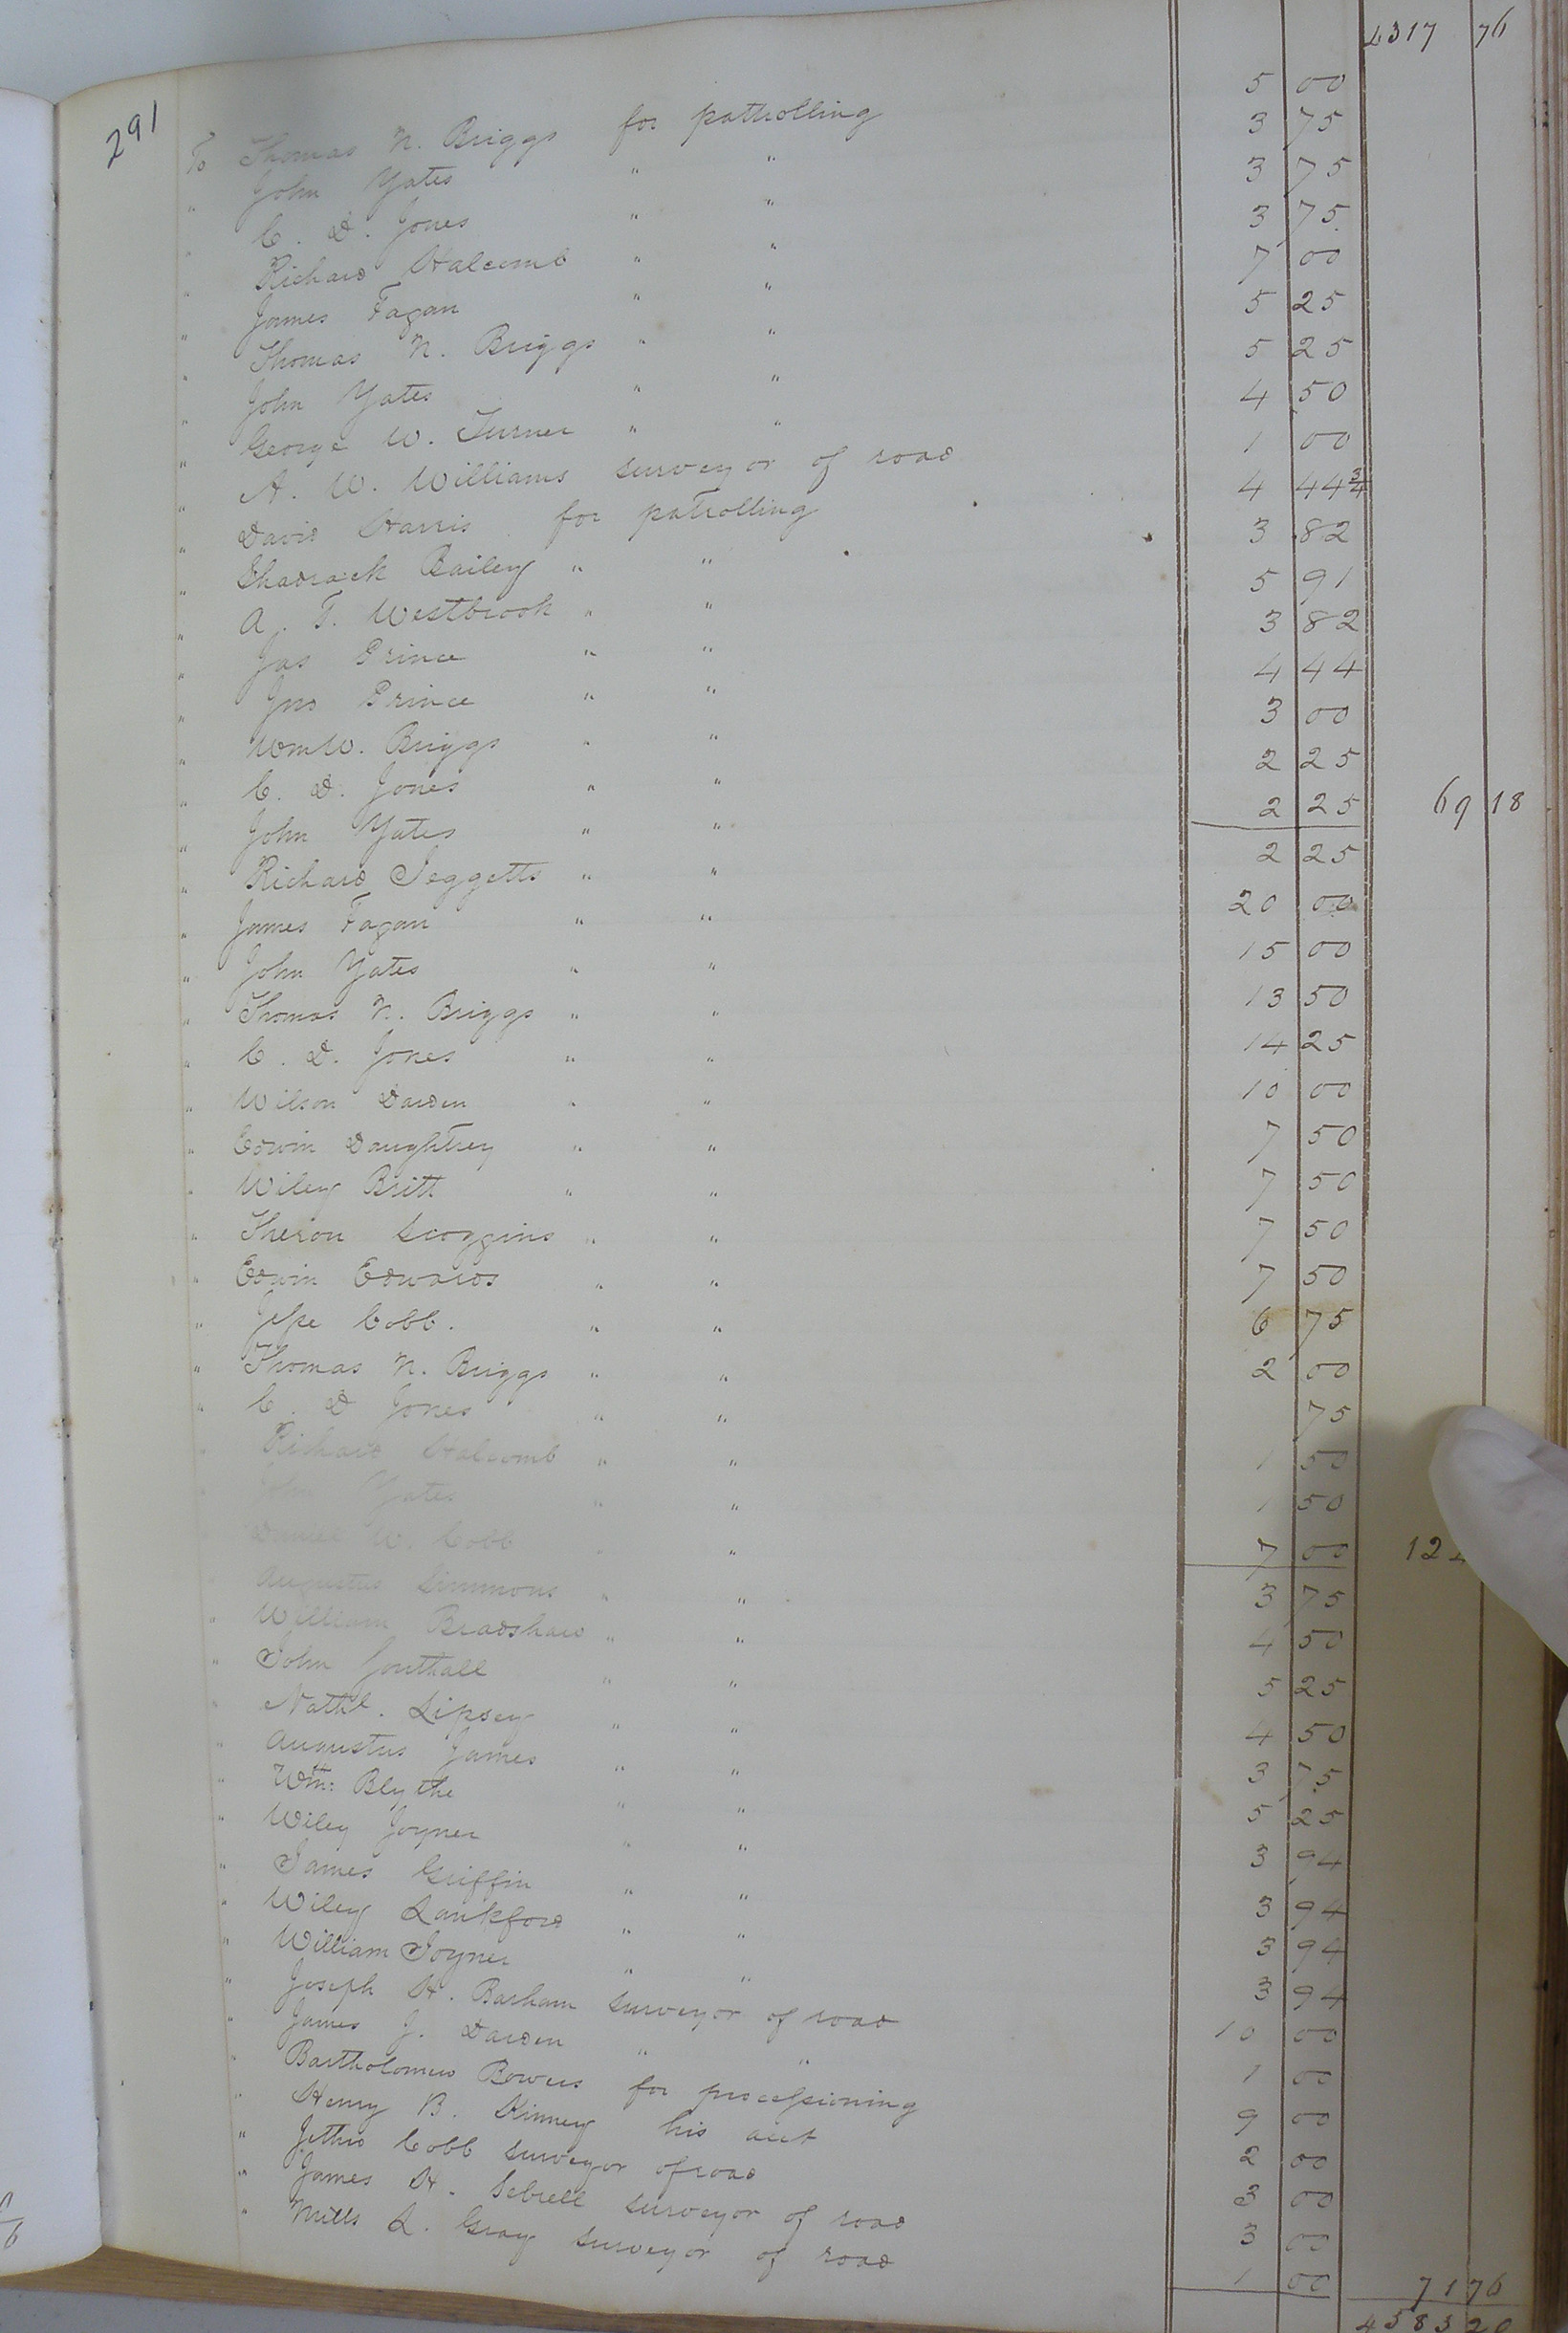 291
4317 76
To Thomas N. Briggs for patrolling 5 00
" John Yates " " 3 75
" C. D. Jones " " 3 75
" Richard Halcomb " " 3 75
" James Fagan " " 7 00
" Thomas N. Briggs " " 5 25
" John Yates " " 5 25
" George W. Turner " " 4 50
" A. W. Williams surveyor of road 1 00
" David Harris for patrolling 4 44 3/4
" Shadrack Bailey " " 3 82
" A. T. Westbrook " " 5 91
" Jas Prince " " 3 82
" Jno Prince " " 4 44
" Wm W. Briggs " " 3 00
" C. D. Jones " " 2 25
" John Yates " " 2 25 69 18
" Richard Jeggetts " " 2 25
" James Fagan " " 20 00
" John Yates " " 15 00
" Thomas N. Briggs " " 13 50
" C. D. Jones " " 14 25
" Wilson Darden " " 10 00
" Edwin Daughtrey " " 7 50
" Wiley Britt " " 7 50
" Theron Scoggins " " 7 50
" Edwin Edwards " " 7 50
" Jesse Cobb. " " 6 75
" Thomas N. Briggs " " 2 00
" C. D Jones " " 75
" Richard Halcomb " " 1 50
" John Yates " " 1 50
" Daniel W. Cobb " " 7 00 12
" Augustus Simmons " " 3 75
" William Bradshaw " " 4 50
" John " " 5 25
" Nathl. Lipsey " " 4 50
" Augustus James " " 3 75
" Wm: Blythe " " 5 25
" Wiley Joyner " " 3 94
" James Griffin " " 3 94
" Wiley Lankford " " 3 94
" William Joyner " " 3 94
" Joseph H. Barham surveyor of road 10 00
" James J. Darden " " 1 00
" Bartholomew Bowers for processioning 9 00
" Henry B. Kinney his acct 2 00
" Jethro Cobb surveyor of road 3 00
" James H. Sebrell surveyor of road 3 00
" Mills L. Gray surveyor of road 1 00 71 76
4583 20